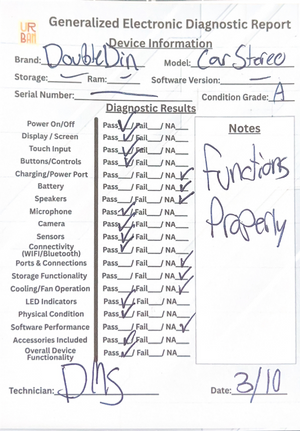 UR
BAN
Generalized Electronic Diagnostic Report
Device Information
Brand: DoubleDin Model: Car Stereo
Storage: Ram: Software Version:
Serial Number: Condition Grade: A
Diagnostic Results
Power On/Off Pass ✓/Fail / NA
Display / Screen Pass ✓/Fail / NA
Touch Input Pass ✓/Fail / NA
Buttons/Controls Pass ✓/Fail / NA
Charging/Power Port Pass /Fail / NA ✓
Battery Pass /Fail / NA ✓
Speakers Pass /Fail / NA ✓
Microphone Pass ✓/Fail / NA
Camera Pass ✓/Fail / NA
Sensors Pass ✓/Fail / NA
Connectivity
(WIFI/Bluetooth) Pass ✓/Fail / NA
Ports & Connections Pass /Fail / NA ✓
Storage Functionality Pass /Fail / NA ✓
Cooling/Fan Operation Pass /Fail / NA ✓
LED Indicators Pass ✓/Fail / NA
Physical Condition Pass ✓/Fail / NA
Software Performance Pass /Fail / NA ✓
Accessories Included Pass ✓/Fail / NA
Overall Device
Functionality Pass ✓/Fail / NA
Notes
Functions
Properly
Technician: DMS Date: 3/10